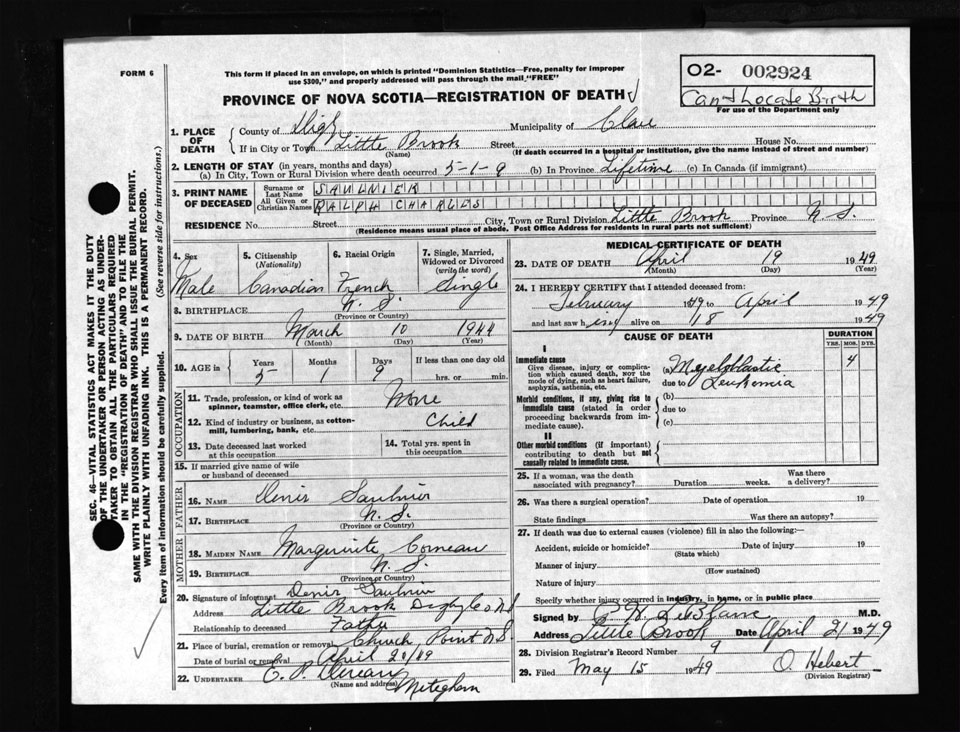 FORM 6
This form if placed in an envelope, on which is printed "Dominion Statistics—Free, penalty for improper
use $300," and properly addressed will pass through the mail "FREE"
O2- 002924
Can't Locate Birth
For use of the Department only
PROVINCE OF NOVA SCOTIA—REGISTRATION OF DEATH
1. PLACE OF DEATH County of Digby Municipality of Clare
If in City or Town Little Brook Street House No.
(Name) (If death occurred in a hospital or institution, give the name instead of street and number)
2. LENGTH OF STAY (in years, months and days)
(a) In City, Town or Rural Division where death occurred 5-1-9 (b) In Province Lifetime (c) In Canada (if immigrant)
3. PRINT NAME OF DECEASED Surname or Last Name SAULNIER
All Given or Christian Names RALPH CHARLES
RESIDENCE No. Street City, Town or Rural Division Little Brook Province N.S.
(Residence means usual place of abode. Post Office Address for residents in rural parts not sufficient)
4. Sex 5. Citizenship (Nationality) 6. Racial Origin 7. Single, Married, Widowed or Divorced (write the word)
Male Canadian French Single
8. BIRTHPLACE N.S.
(Province or Country)
9. DATE OF BIRTH March 10 1944
(Month) (Day) (Year)
10. AGE in Years Months Days If less than one day old
5 1 9 hrs. or min.
OCCUPATION
11. Trade, profession, or kind of work as spinner, teamster, office clerk, etc. None
12. Kind of industry or business, as cotton-mill, lumbering, bank, etc. Child
13. Date deceased last worked at this occupation 14. Total yrs. spent in this occupation
15. If married give name of wife or husband of deceased
FATHER
16. NAME Denis Saulnier
17. BIRTHPLACE N.S.
(Province or Country)
MOTHER
18. MAIDEN NAME Marguerite Comeau
19. BIRTHPLACE N.S.
(Province or Country)
20. Signature of informant Denis Saulnier
Address Little Brook Digby Co N.S
Relationship to deceased Father
21. Place of burial, cremation or removal Church Point N.S
Date of burial or removal April 20/49
22. UNDERTAKER E. P.
(Name and address) Meteghan
MEDICAL CERTIFICATE OF DEATH
23. DATE OF DEATH April 19 1949
(Month) (Day) (Year)
24. I HEREBY CERTIFY that I attended deceased from:
February 1949 to April 1949
and last saw him alive on 18 1949
CAUSE OF DEATH DURATION
YRS. MOS. DYS.
I
Immediate cause
Give disease, injury or complication which caused death, not the mode of dying, such as heart failure, asphyxia, asthenia, etc.
(a) Myeloblastic 4
due to Leukemia
Morbid conditions, if any, giving rise to immediate cause (stated in order proceeding backwards from immediate cause).
(b)
due to
(c)
II
Other morbid conditions (if important) contributing to death but not causally related to immediate cause.
25. If a woman, was the death associated with pregnancy? Duration weeks. Was there a delivery?
26. Was there a surgical operation? Date of operation 19
State findings Was there an autopsy?
27. If death was due to external causes (violence) fill in also the following:—
Accident, suicide or homicide? Date of injury 19
(State which)
Manner of injury
(How sustained)
Nature of injury
Specify whether injury occurred in industry, in home, or in public place
Signed by P. H. LeBlanc M.D.
Address Little Brook Date April 21 1949
28. Division Registrar's Record Number 9
29. Filed May 15 1949 O. Hebert
(Division Registrar)
SEC. 46—VITAL STATISTICS ACT MAKES IT THE DUTY
OF THE UNDERTAKER OR PERSON ACTING AS UNDER-
TAKER TO OBTAIN ALL THE PARTICULARS REQUIRED
IN THE "REGISTRATION OF DEATH" AND TO FILE THE
SAME WITH THE DIVISION REGISTRAR WHO SHALL ISSUE THE BURIAL PERMIT.
WRITE PLAINLY WITH UNFADING INK. THIS IS A PERMANENT RECORD.
Every item of information should be carefully supplied. (See reverse side for instructions.)